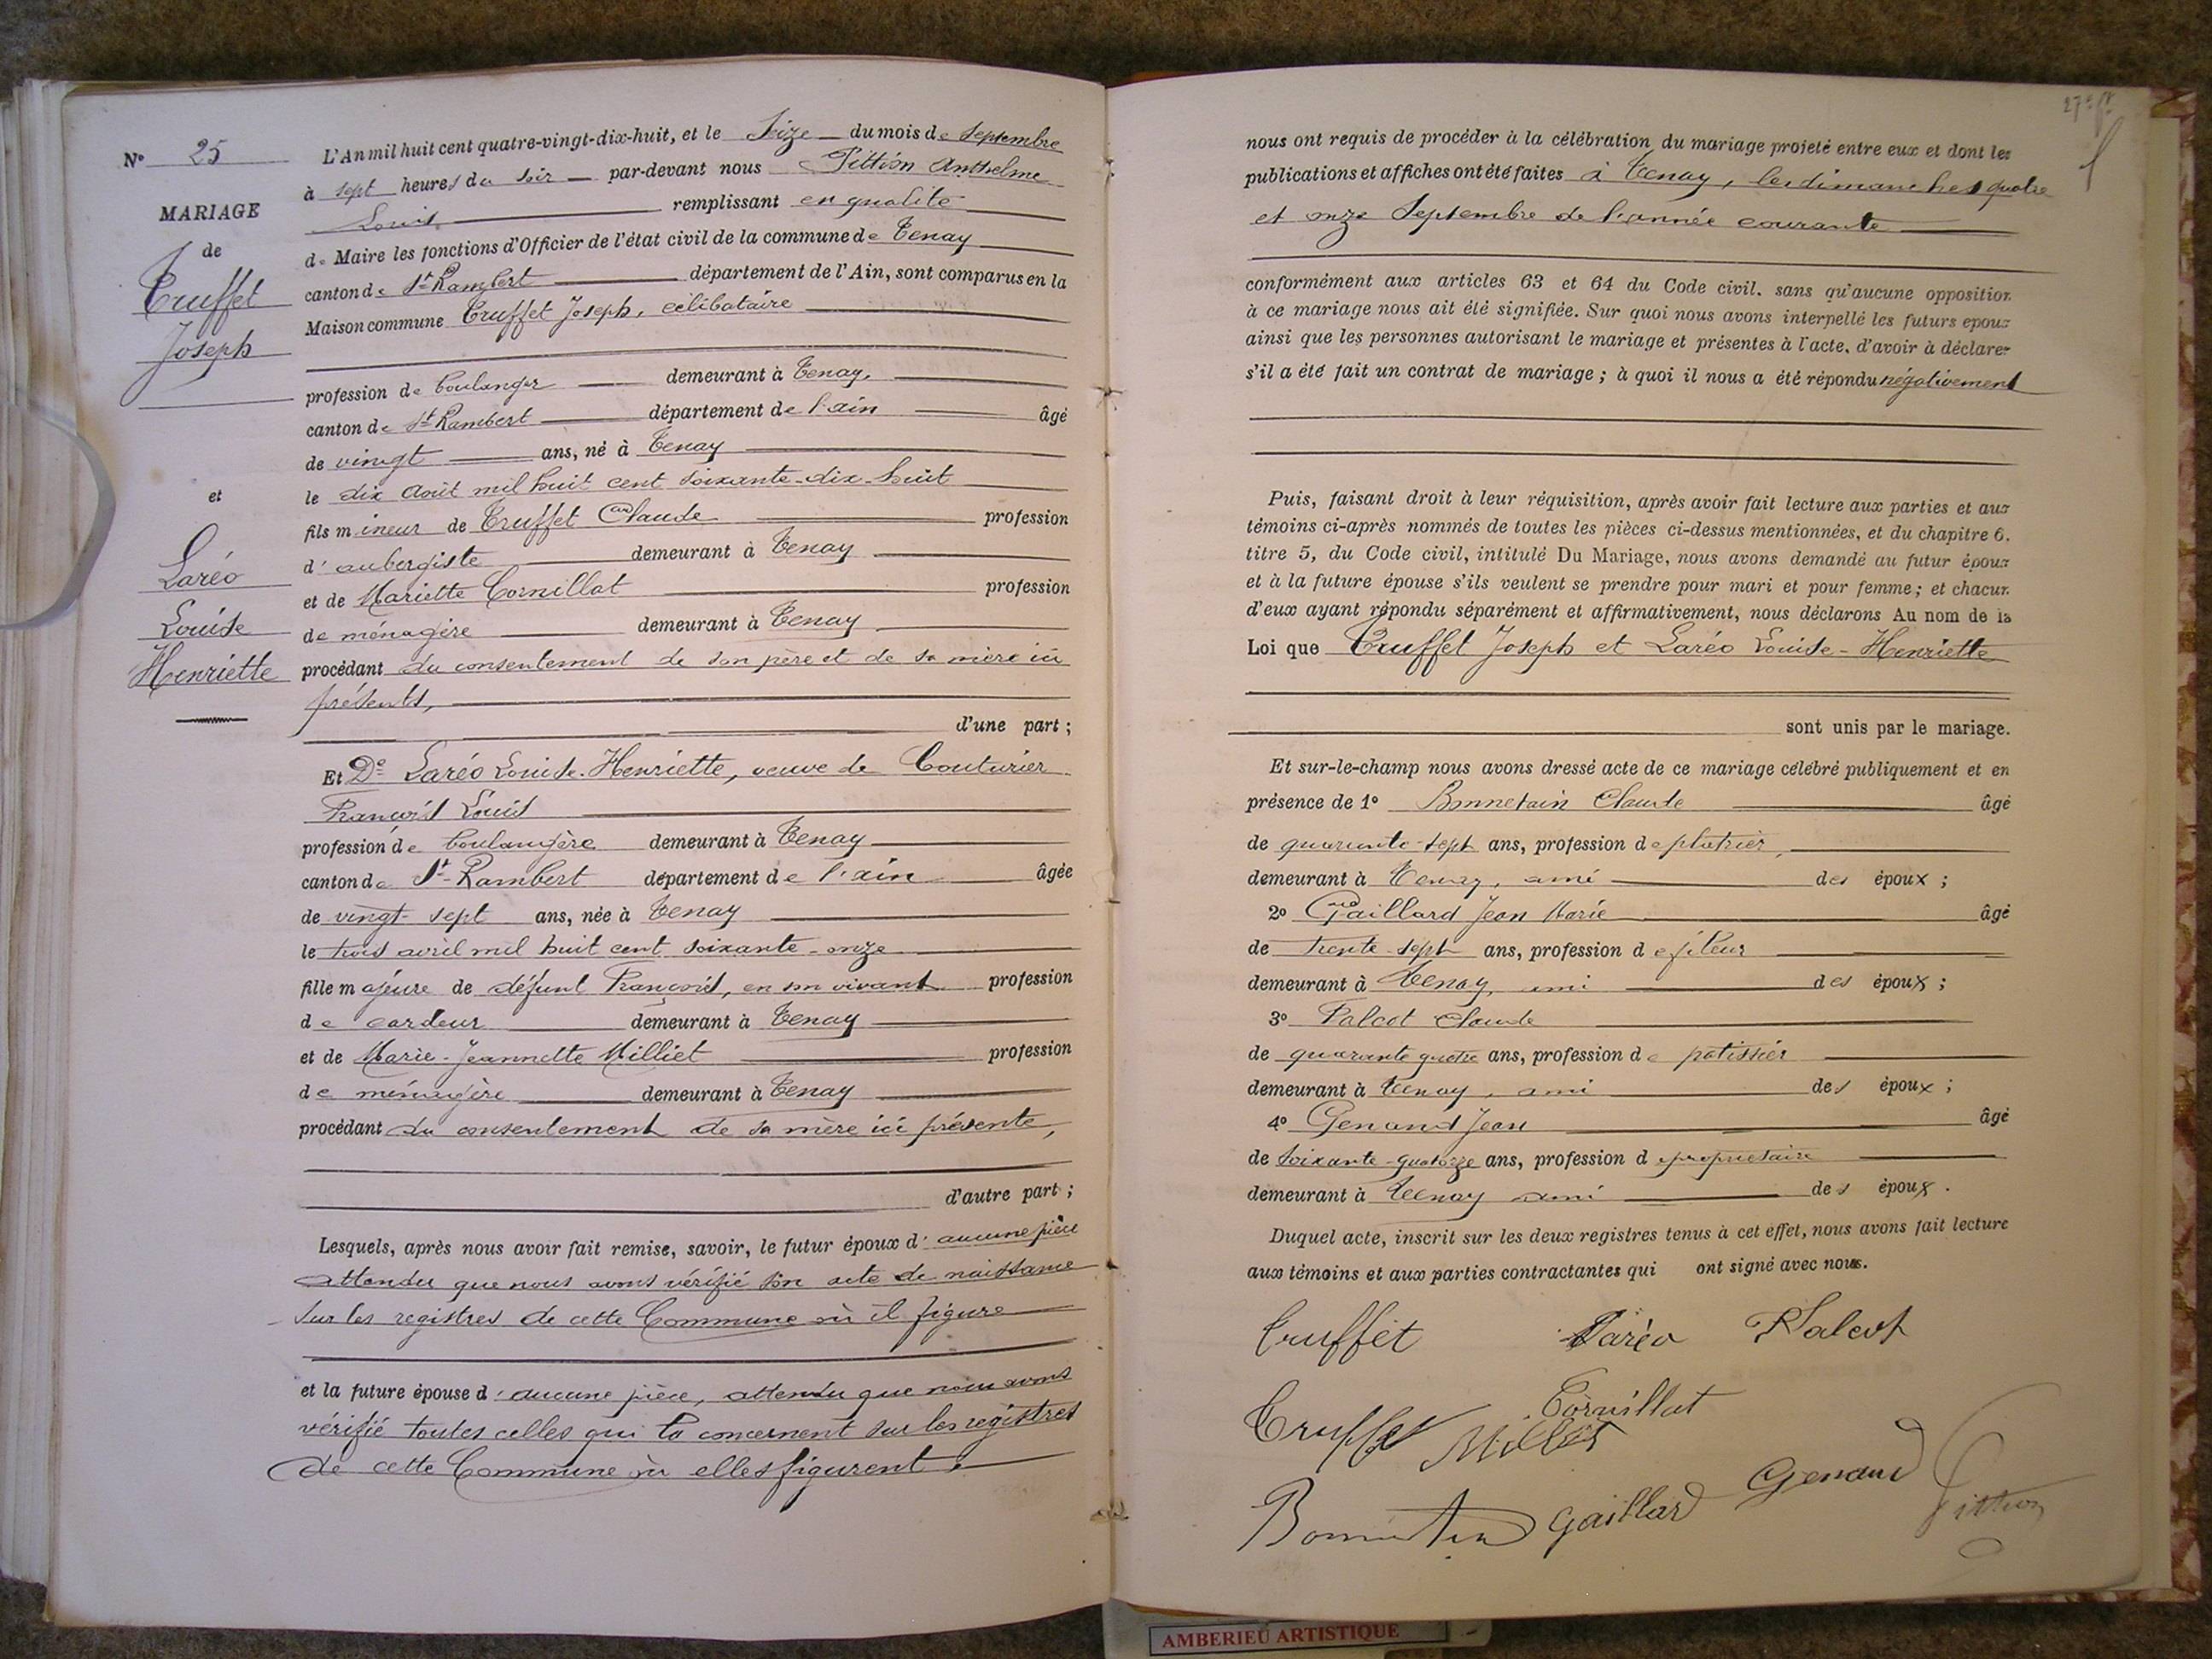 N° 25
MARIAGE
de
Truffet
Joseph
et
Laréo
Louise
Henriette
L'An mil huit cent quatre-vingt-dix-huit, et le Seize du mois de Septembre
à sept heures du soir par-devant nous Pittion Anthelme
Louis remplissant en qualité
de Maire les fonctions d'Officier de l'état civil de la commune de Tenay
canton de St Rambert département de l'Ain, sont comparus en la
Maison commune Truffet Joseph, célibataire
profession de boulanger demeurant à Tenay,
canton de St Rambert département de l'ain âgé
de vingt ans, né à Tenay
le dix Août mil huit cent soixante-dix-huit
fils mineur de Truffet Claude profession
d'aubergiste demeurant à Tenay
et de Mariette Cornillat profession
de ménagère demeurant à Tenay
procédant du consentement de son père et de sa mère ici
présents,
d'une part ;
Et De Laréo Louise-Henriette, veuve de Couturier
François Louis
profession de boulangère demeurant à Tenay
canton de St-Rambert département de l'ain âgée
de vingt-sept ans, née à Tenay
le trois avril mil huit cent soixante-onze
fille majeure de défunt François, en son vivant profession
de cardeur demeurant à Tenay
et de Marie-Jeannette Milliet profession
de ménagère demeurant à Tenay
procédant du consentement de sa mère ici présente,
d'autre part ;
Lesquels, après nous avoir fait remise, savoir, le futur époux d'aucune pièce
attendu que nous avons vérifié son acte de naissance
sur les registres de cette Commune où il figure
et la future épouse d'aucune pièce, attendu que nous avons
vérifié toutes celles qui la concernent sur les registres
de cette Commune où elles figurent.
27e ft
nous ont requis de procéder à la célébration du mariage projeté entre eux et dont les
publications et affiches ont été faites à Tenay, les dimanches quatre
et onze Septembre de l'année courante
conformément aux articles 63 et 64 du Code civil. sans qu'aucune opposition
à ce mariage nous ait été signifiée. Sur quoi nous avons interpellé les futurs époux
ainsi que les personnes autorisant le mariage et présentes à l'acte, d'avoir à déclarer
s'il a été fait un contrat de mariage ; à quoi il nous a été répondu négativement
Puis, faisant droit à leur réquisition, après avoir fait lecture aux parties et aux
témoins ci-après nommés de toutes les pièces ci-dessus mentionnées, et du chapitre 6.
titre 5, du Code civil, intitulé Du Mariage, nous avons demandé au futur époux
et à la future épouse s'ils veulent se prendre pour mari et pour femme ; et chacun
d'eux ayant répondu séparément et affirmativement, nous déclarons Au nom de la
Loi que Truffet Joseph et Laréo Louise-Henriette
sont unis par le mariage.
Et sur-le-champ nous avons dressé acte de ce mariage célébré publiquement et en
présence de 1° Bonnetain Claude âgé
de quarante-sept ans, profession de platrier,
demeurant à Tenay, ami des époux ;
2° Gaillard Jean Marie âgé
de trente-sept ans, profession de fileur
demeurant à Tenay, ami des époux ;
3° Falcot Claude
de quarante quatre ans, profession de patissier
demeurant à Tenay, ami des époux ;
4° Genand Jean âgé
de soixante-quatorze ans, profession de propriétaire
demeurant à Tenay ami des époux.
Duquel acte, inscrit sur les deux registres tenus à cet effet, nous avons fait lecture
aux témoins et aux parties contractantes qui ont signé avec nous.
Truffet Laréo Falcot
Truffet Milliet Cornillat
Bonnetain Gaillard Genand Pittion
AMBERIEU ARTISTIQUE